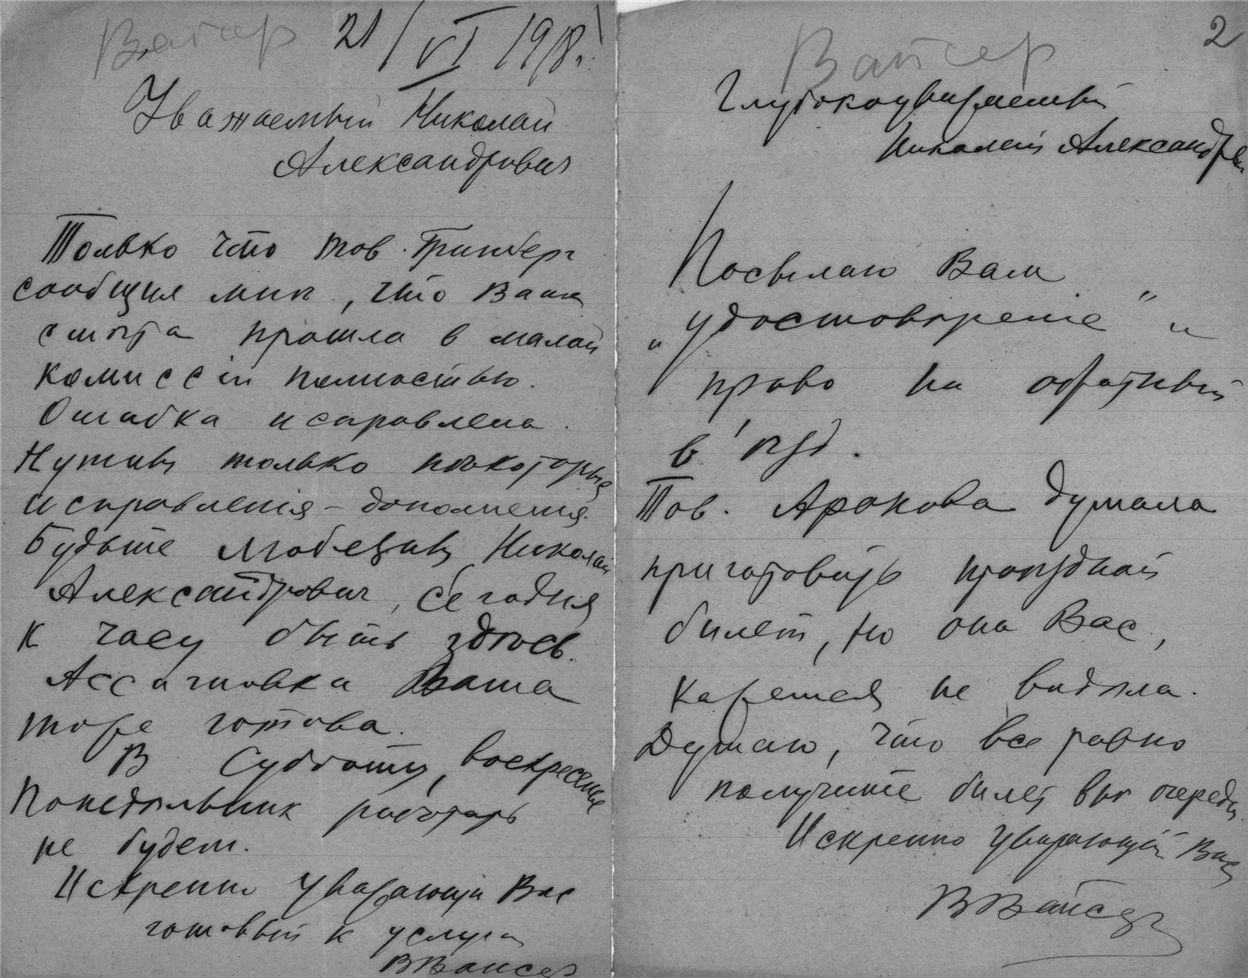 Вайсер 21/VI 1918.
Уважаемый Николай
Александрович
Только что тов. Гринберг
сообщил мне, что Ваша
смѣта прошла в малой
комиссіи полностью.
Ошибка исправлена.
Нужны только нѣкоторые
исправленія – дополненія.
Будьте любезны, Николай
Александрович, сегодня
к часу быть здѣсь.
Ассигновка Ваша
тоже готова.
В субботу, воскресенье
понедѣльник работать
не будем.
Искренно уважающій Вас
готовый к услугам
ВВайсер
2
Вайсер
Глубокоуважаемый
Николай Александрович
Посылаю Вам
„удостовѣреніе" и
право на обратный
въѣзд.
Тов. Аронова думала
приготовить проѣздной
билет, но она Вас,
кажется не видѣла.
Думаю, что все равно
получите билет внѣ очереди.
Искренно уважающій Вас
ВВайсер